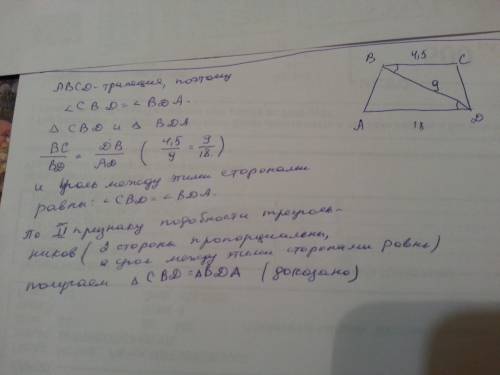 ABCD-трапеция, поэтому
∠CBD=∠BDA.
△CBD и △BDA
BC/BD = DB/AD (4,5/9 = 9/18)
и угол между этими сторонами
равны: ∠CBD=∠BDA.
По II признаку подобности треуголь-
ников (2 стороны пропорциальны,
а угол между этими сторонами равны)
получаем △CBD=△BDA (доказано)
B 4,5 C
9
A 18 D